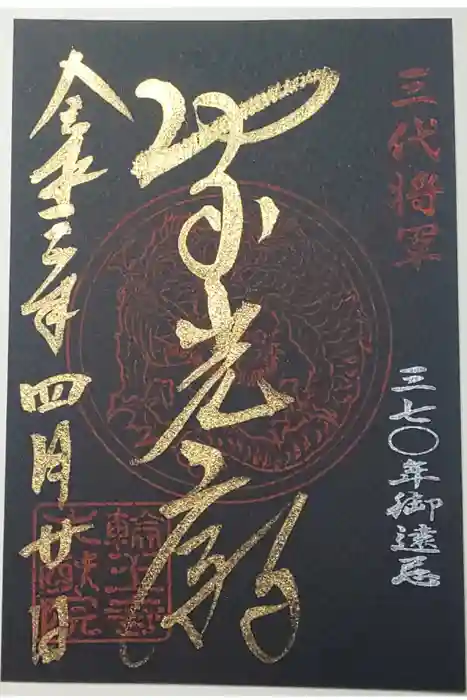 三代将軍
三七〇年御遠忌
家光廟
令和三年四月廿日
輪王寺
大猷院